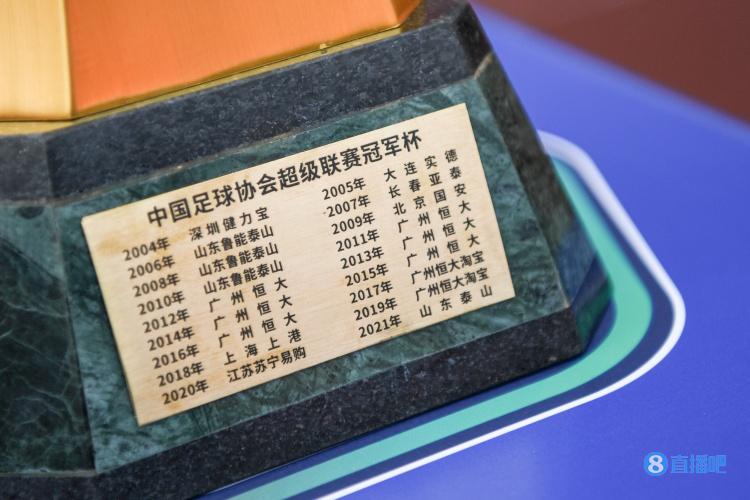 中国足球协会超级联赛冠军杯
2004年 深圳健力宝
2006年 山东鲁能泰山
2008年 山东鲁能泰山
2010年 山东鲁能泰山
2012年 广州恒大
2014年 广州恒大
2016年 广州恒大
2018年 上海上港
2020年 江苏苏宁易购
2005年 大连实德
2007年 长春亚泰
2009年 北京国安
2011年 广州恒大
2013年 广州恒大
2015年 广州恒大
2017年 广州恒大淘宝
2019年 广州恒大淘宝
2021年 山东泰山
8直播吧